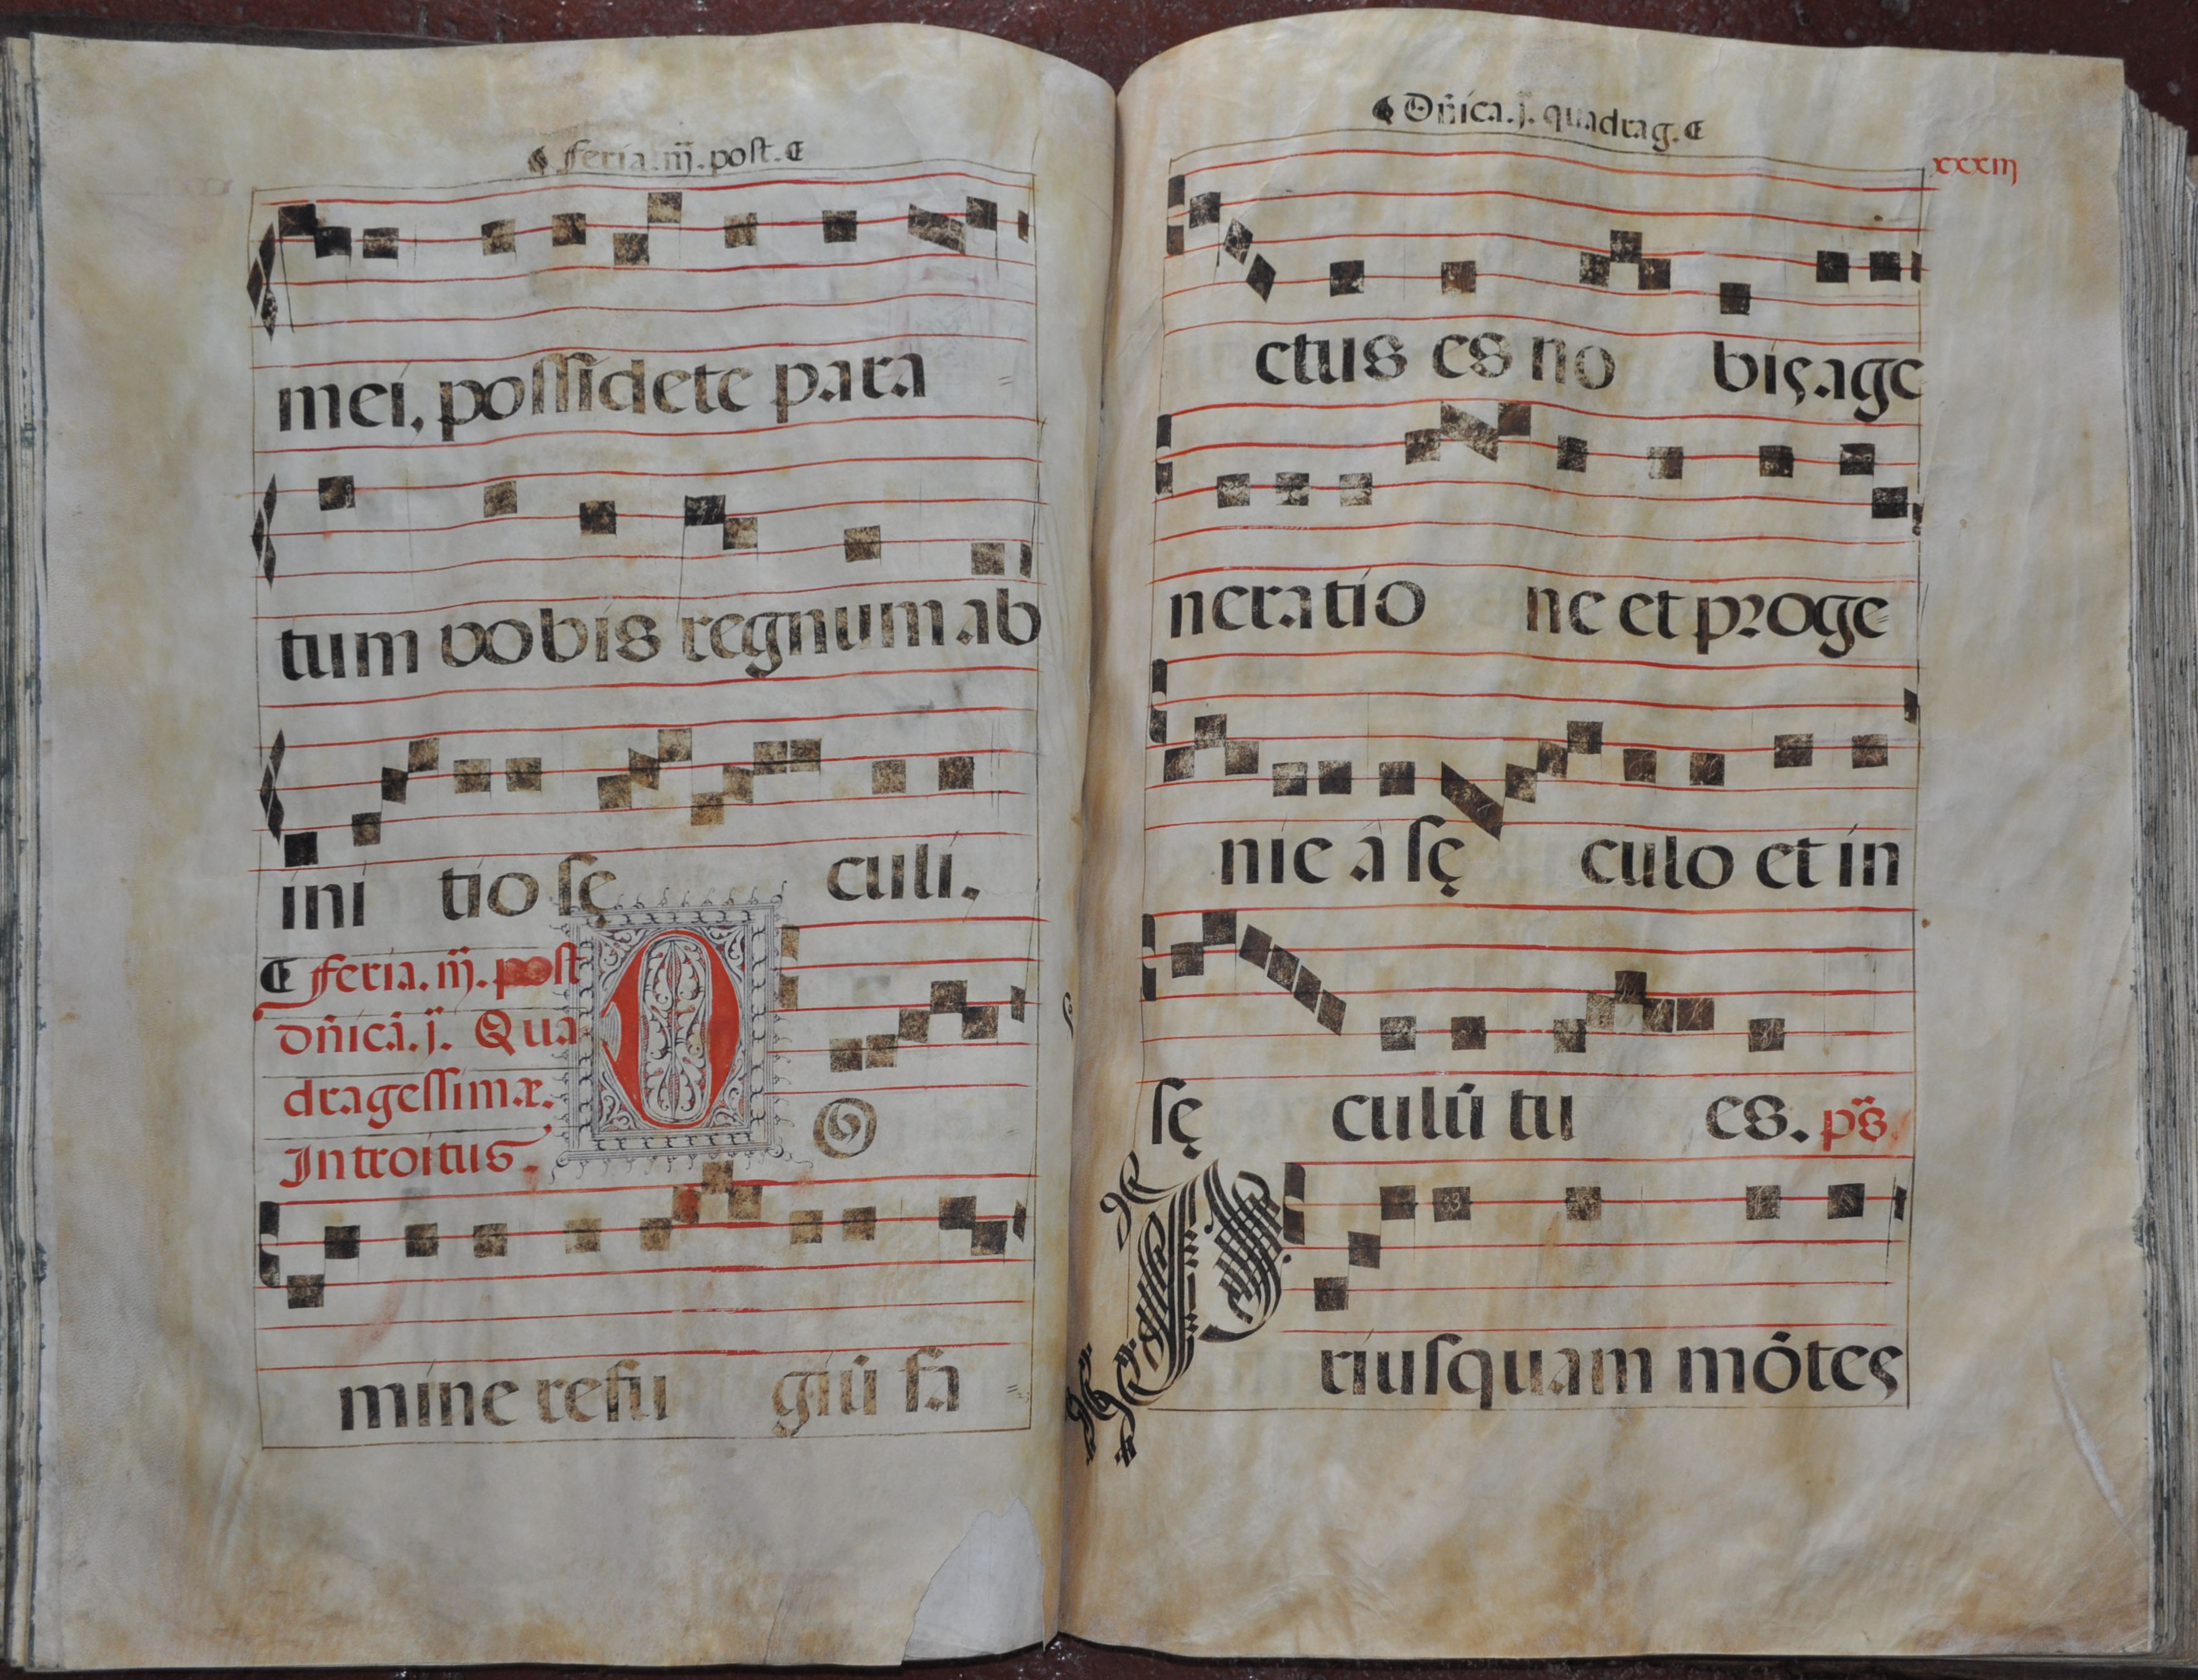 feria.iij.post.
mei, possidete para
tum vobis regnum ab
ini tio sę culi.
feria.iij.post
Dñicã.j. Qua
dragessimæ.
Introitus.
DO
mine refu giũ fa
Dñica.j.quadrag.
xxxiij
ctus es no bis age
neratio ne et proge
nie à sę culo et in
sę culũ tu es. ps̃
Priusquam mõtes